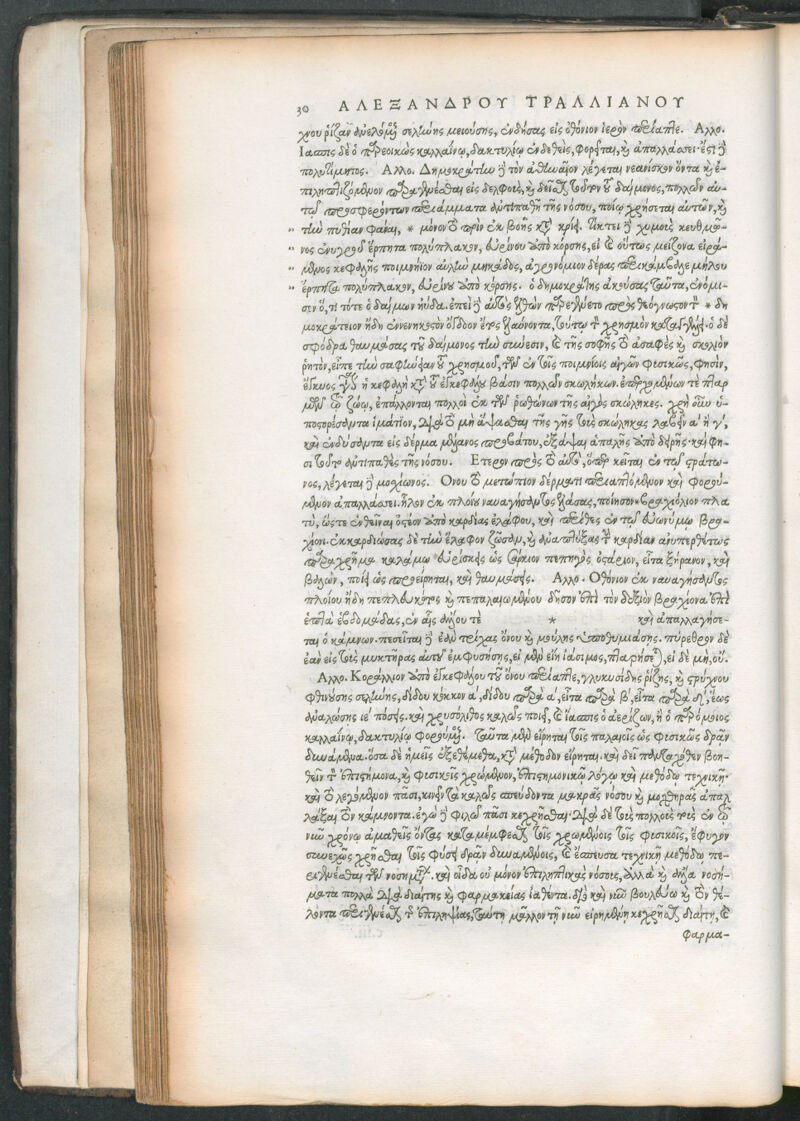 30 ΑΛΕΞΑΝΔΡΟΥ ΤΡΑΛΛΙΑΝΟΥ
χνου ῥίζαν ἀνελόμενος σελήνης μειούσης, ἐνδήσας εἰς ὀθόνιον ἱερὸν περίαπτε. Αλλο.
Ιασπις δὲ ὁ καλλαΐνῳ, δακτυλίῳ ἐνδεθεὶς, φορεῖται, καὶ ἀπαλλάσσει· ἔστι γὰρ
πολυτίμητος. Αλλο. Δημοκράτην γὰρ τὸν ἀθηναῖον λέγεται νεανίσκον ὄντα καὶ ἐ-
πιληπτιζόμενον παραγενέσθαι εἰς δελφοὺς, καὶ δεῖσθαι τοῦ δαίμονος, πολλῶν αὐ-
τῷ προσφερόντων περιάμματα ἀντιπαθῆ τῆς νόσου, ποίῳ χρήσεται αὐτῶν, καὶ
τὴν πυθίαν φάναι, *
νος ἐνυγροῦ ἕρπητα πολύπλαγκτον, εὐρίνου ἀπὸ κόρσης, εἰ καὶ οὕτως μείζονα εἰρά-
μενος κεφαλῆς ποιμνήϊον αὐλὴν μηκάδος, ἀγρονόμοιο δέρας περικάμβαλε μήλου
ἕρπητα πολύπλαγκτον, εὐρίνου ἀπὸ κόρσης. ὁ δημοκράτης ἀκούσας ταῦτα, ἐνόμι-
σεν ὅ, τι τότε ὁ δαίμων ηὔδα. ἐπεὶ γὰρ αὖθις ἐλθὼν παρεγένετο πρὸς θεόγνωστον τὸν * δη
μοκράτειον ἤδη ἐννενηκοστὸν ὄγδοον ἔτος ἐλαύνοντα, τοῦτῳ τὸν χρησμὸν καταλέγει. ὁ δὲ
σφόδρα θαυμάσας τοῦ δαίμονος τὴν σύνεσιν, καὶ τῆς σοφῆς τὸ ἀσαφὲς καὶ σκολιὸν
ῥητὸν, εἶπε τὴν σαφήνειαν τοῦ χρησμοῦ, τῶν ἐν τοῖς ποιμνίοις αἰγῶν φυσικῶς, φησὶν,
ἔγκυος γὰρ ἡ κεφαλὴ κατὰ τοῦ ἐγκεφάλου βάσιν πολλῶν σκωλήκων. πταρ
μῶν τῷ ζώῳ, ἐπάλλονται πολλοὶ ἐκ τῶν ῥωθώνων τῆς αἰγὸς σκώληκες. χρὴ οὖν ὑ-
ποστορέσαντα ἱμάτιον, διὰ τὸ μὴ ἅψασθαι τῆς γῆς τοὺς σκώληκας λαβεῖν α´ ἢ γ´,
καὶ ἐνδύσαντα εἰς δέρμα μέλανος προβάτου, ἐξάψαι ἁπαλῆς ἀπὸ δέρης· καὶ φη-
σὶ τοῦτο ἀντιπαθὲς τῆς νόσου. Ετερον πρὸς τὸ αὐτὸ, ὅπερ κεῖται ἐν τῷ στράτω-
νος, λέγεται γὰρ μοχίωνος. Ονου τὸ μετώπιον δέρματι περιαπτόμενον καὶ φορού-
μενον ἀπαλλάσσει. ἧλον ἐκ πλοίου ναυαγήσαντος ἐλάσας, ποίησον βραχιόλιον πλα
τὺ, ὥστε ἐνθεῖναι ὀστέον ἀπὸ καρδίας ἐλάφου, καὶ περίθες ἐν τῷ εὐωνύμῳ βρα-
χίονι. ἐκκαρδιώσας δὲ τὴν ἔλαφον ζῶσαν, καὶ ἀναπτύξας τὴν καρδίαν ἀνυπερθέτως
παραχρῆμα καλάμῳ εὑρίσκεις ὡς τάριον πεπηγὸς ὀστάριον, εἶτα ξήρανον, καὶ
βαλὼν, ποίει ὡς προείρηται, καὶ θαυμάσεις. Αλλο. Οθόνιον ἐκ ναυαγήσαντος
πλοίου ἤδη πεπλευκότος καὶ πεπαλαιωμένου δῆσον ἐπὶ τὸν δεξιὸν βραχίονα ἐπὶ
ἑπτὰ ἑβδομάδας, ἐν αἷς * καὶ ἀπαλλαγήσε-
ται ὁ κάμνων. πεσεῖται γὰρ ἐὰν τρίχας ὄνου καὶ μούλης ὑποθυμιάσῃς. πύρεθρον δὲ
ἐὰν εἰς τοὺς μυκτῆρας αὐτοῦ ἐμφυσήσῃς, εἰ μὲν εἴη ἰάσιμος, πταρήσεται, εἰ δὲ μὴ, οὔ.
Αλλο. Κοράλλιον ἀπὸ ἐγκεφάλου τοῦ ὄνου περίαπτε, γλυκυσίδης ῥίζης, καὶ στρύχνου
φθινούσης σελήνης, δίδου κόκκον α´, δίδου παρὰ α´, εἶτα παρὰ β´, εἶτα παρὰ , ἕως
ἀναλώσῃς ιε´ πόσεις. καὶ χρυσόλιθος καλῶς ποιεῖ, καὶ ἴασπις ὁ ἀερίζων, ἢ ὁ
καλλαΐνῳ, δακτυλίῳ φορούμενος. Ταῦτα μὲν εἴρηται τοῖς παλαιοῖς ὡς φυσικῶς δρᾶν
δυνάμενα. ὅσα δὲ ἡμεῖς ἐξεθέμεθα, κατὰ μέθοδον εἴρηται. καὶ δεῖ πανταχόθεν βοη-
θεῖν τὸν ἐπιστήμονα, καὶ φυσικοῖς χρώμενον, ἐπιστημονικῷ λόγῳ καὶ μεθόδῳ τεχνικῇ·
καὶ τὸ λεγόμενον πᾶσι, κινεῖν τὰ καλῶς σπεύδοντα μακρᾶς νόσου καὶ μοχθηρᾶς ἀπαλ
λάξαι τὸν κάμνοντα. ἐγὼ γὰρ φιλῶ πᾶσι κεχρῆσθαι· διὰ δὲ τοὺς πολλοὺς τοὺς ἐν τῷ
νῦν χρόνῳ ἀμαθεῖς ὄντας καταμέμφεσθαι τοῖς χρωμένοις τοῖς φυσικοῖς, ἔφυγον
συνεχῶς χρῆσθαι τοῖς φύσει δρᾶν δυναμένοις, καὶ ἔσπευσα τεχνικῇ μεθόδῳ πε-
ριγενέσθαι τῶν νοσημάτων. καὶ οἶδα οὐ μόνον ἐπιληπτικὰς νόσους, ἀλλὰ καὶ ἄλλα νοσή-
ματα πολλὰ διὰ διαίτης καὶ φαρμακείας ἰαθέντα. διὸ καὶ νῦν βουλεύω καὶ τὸν θέ-
λοντα περιγενέσθαι τῆς ἐπιληψίας, ταύτῃ μᾶλλον τῇ νῦν εἰρημένῃ κεχρῆσθαι διαίτῃ, καὶ
φαρμα-